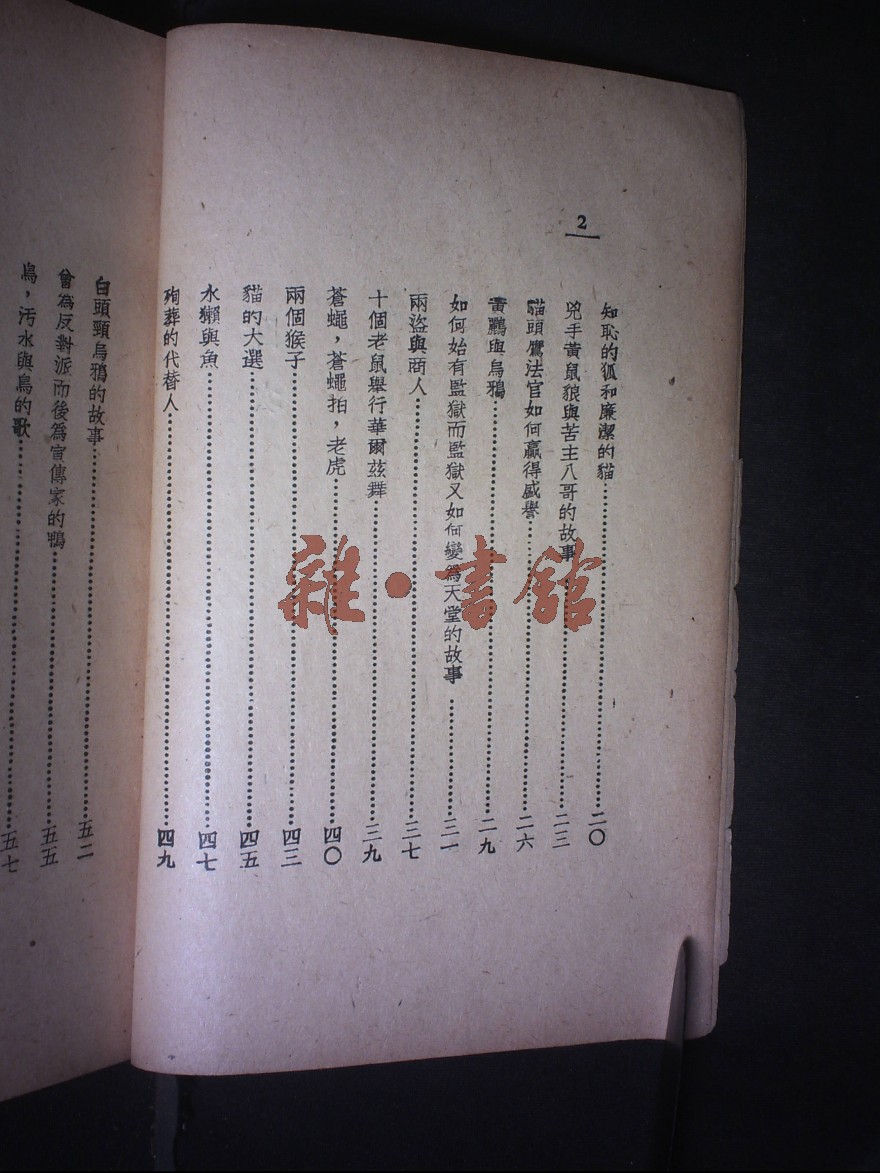 2
知恥的狐和廉潔的貓⋯⋯二〇
兇手黃鼠狼與苦主八哥的故事⋯⋯二三
貓頭鷹法官如何贏得盛譽⋯⋯二六
黃鸝與烏鴉⋯⋯二九
如何始有監獄而監獄又如何變為天堂的故事⋯⋯三一
兩盜與商人⋯⋯三七
十個老鼠舉行華爾茲舞⋯⋯三九
蒼蠅，蒼蠅拍，老虎⋯⋯四〇
兩個猴子⋯⋯四三
貓的大選⋯⋯四五
水獺與魚⋯⋯四七
殉葬的代替人⋯⋯四九
白頭頸烏鴉的故事⋯⋯五二
曾為反對派而後為宣傳家的鴨⋯⋯五五
烏，汚水與鳥的歌⋯⋯五七
雜·書館